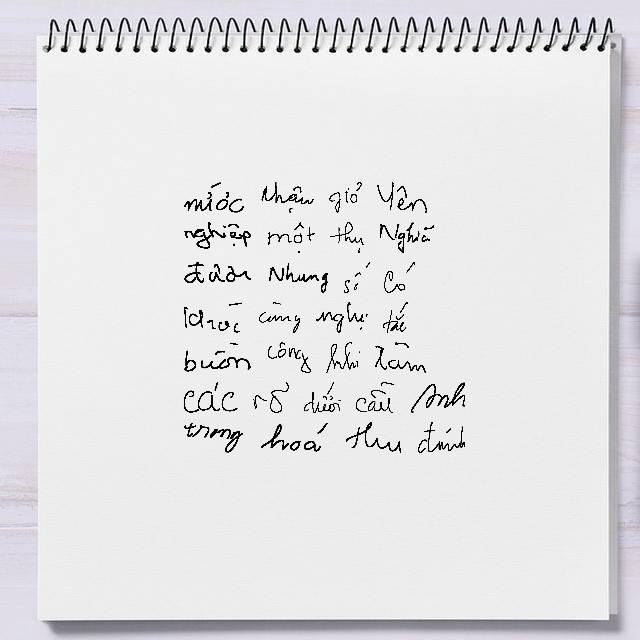 nước Nhận giỏ Yên
nghiệp một thụ Nghĩa
được Nhưng số Có
cũng nghị tắc
buồn công khi làm
các rõ dưới cầu Anh
trong hoá thu định